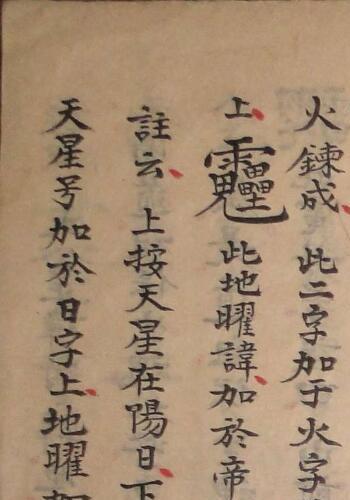 火鍊成此二字加于火字
上此地曜諱加於帝
註云上按天星在陽日下
天星号加於日字上地曜